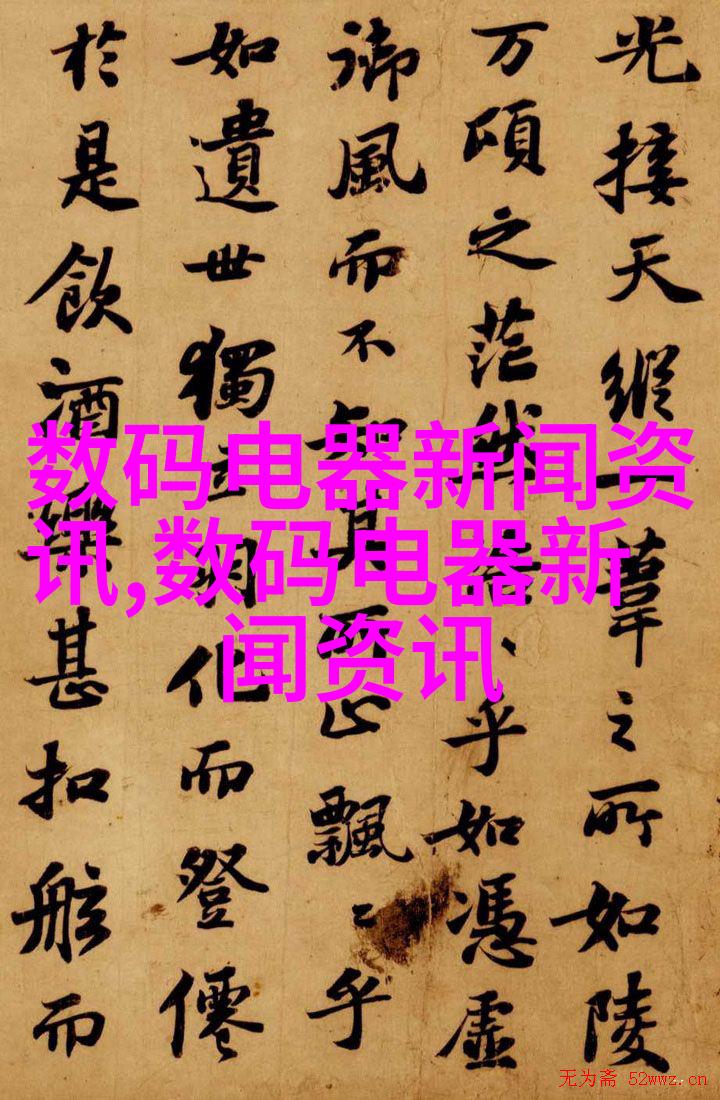 光接天縱一葦之所如陵
万頃之茫然浩〻乎如憑虛
御風而不知其所止飄〻乎
如遺世獨立羽化而登僊
於是飲酒樂甚扣舷而
数码电器新闻资
讯,数码电器新
闻资讯
无为斋 52wwz.cn